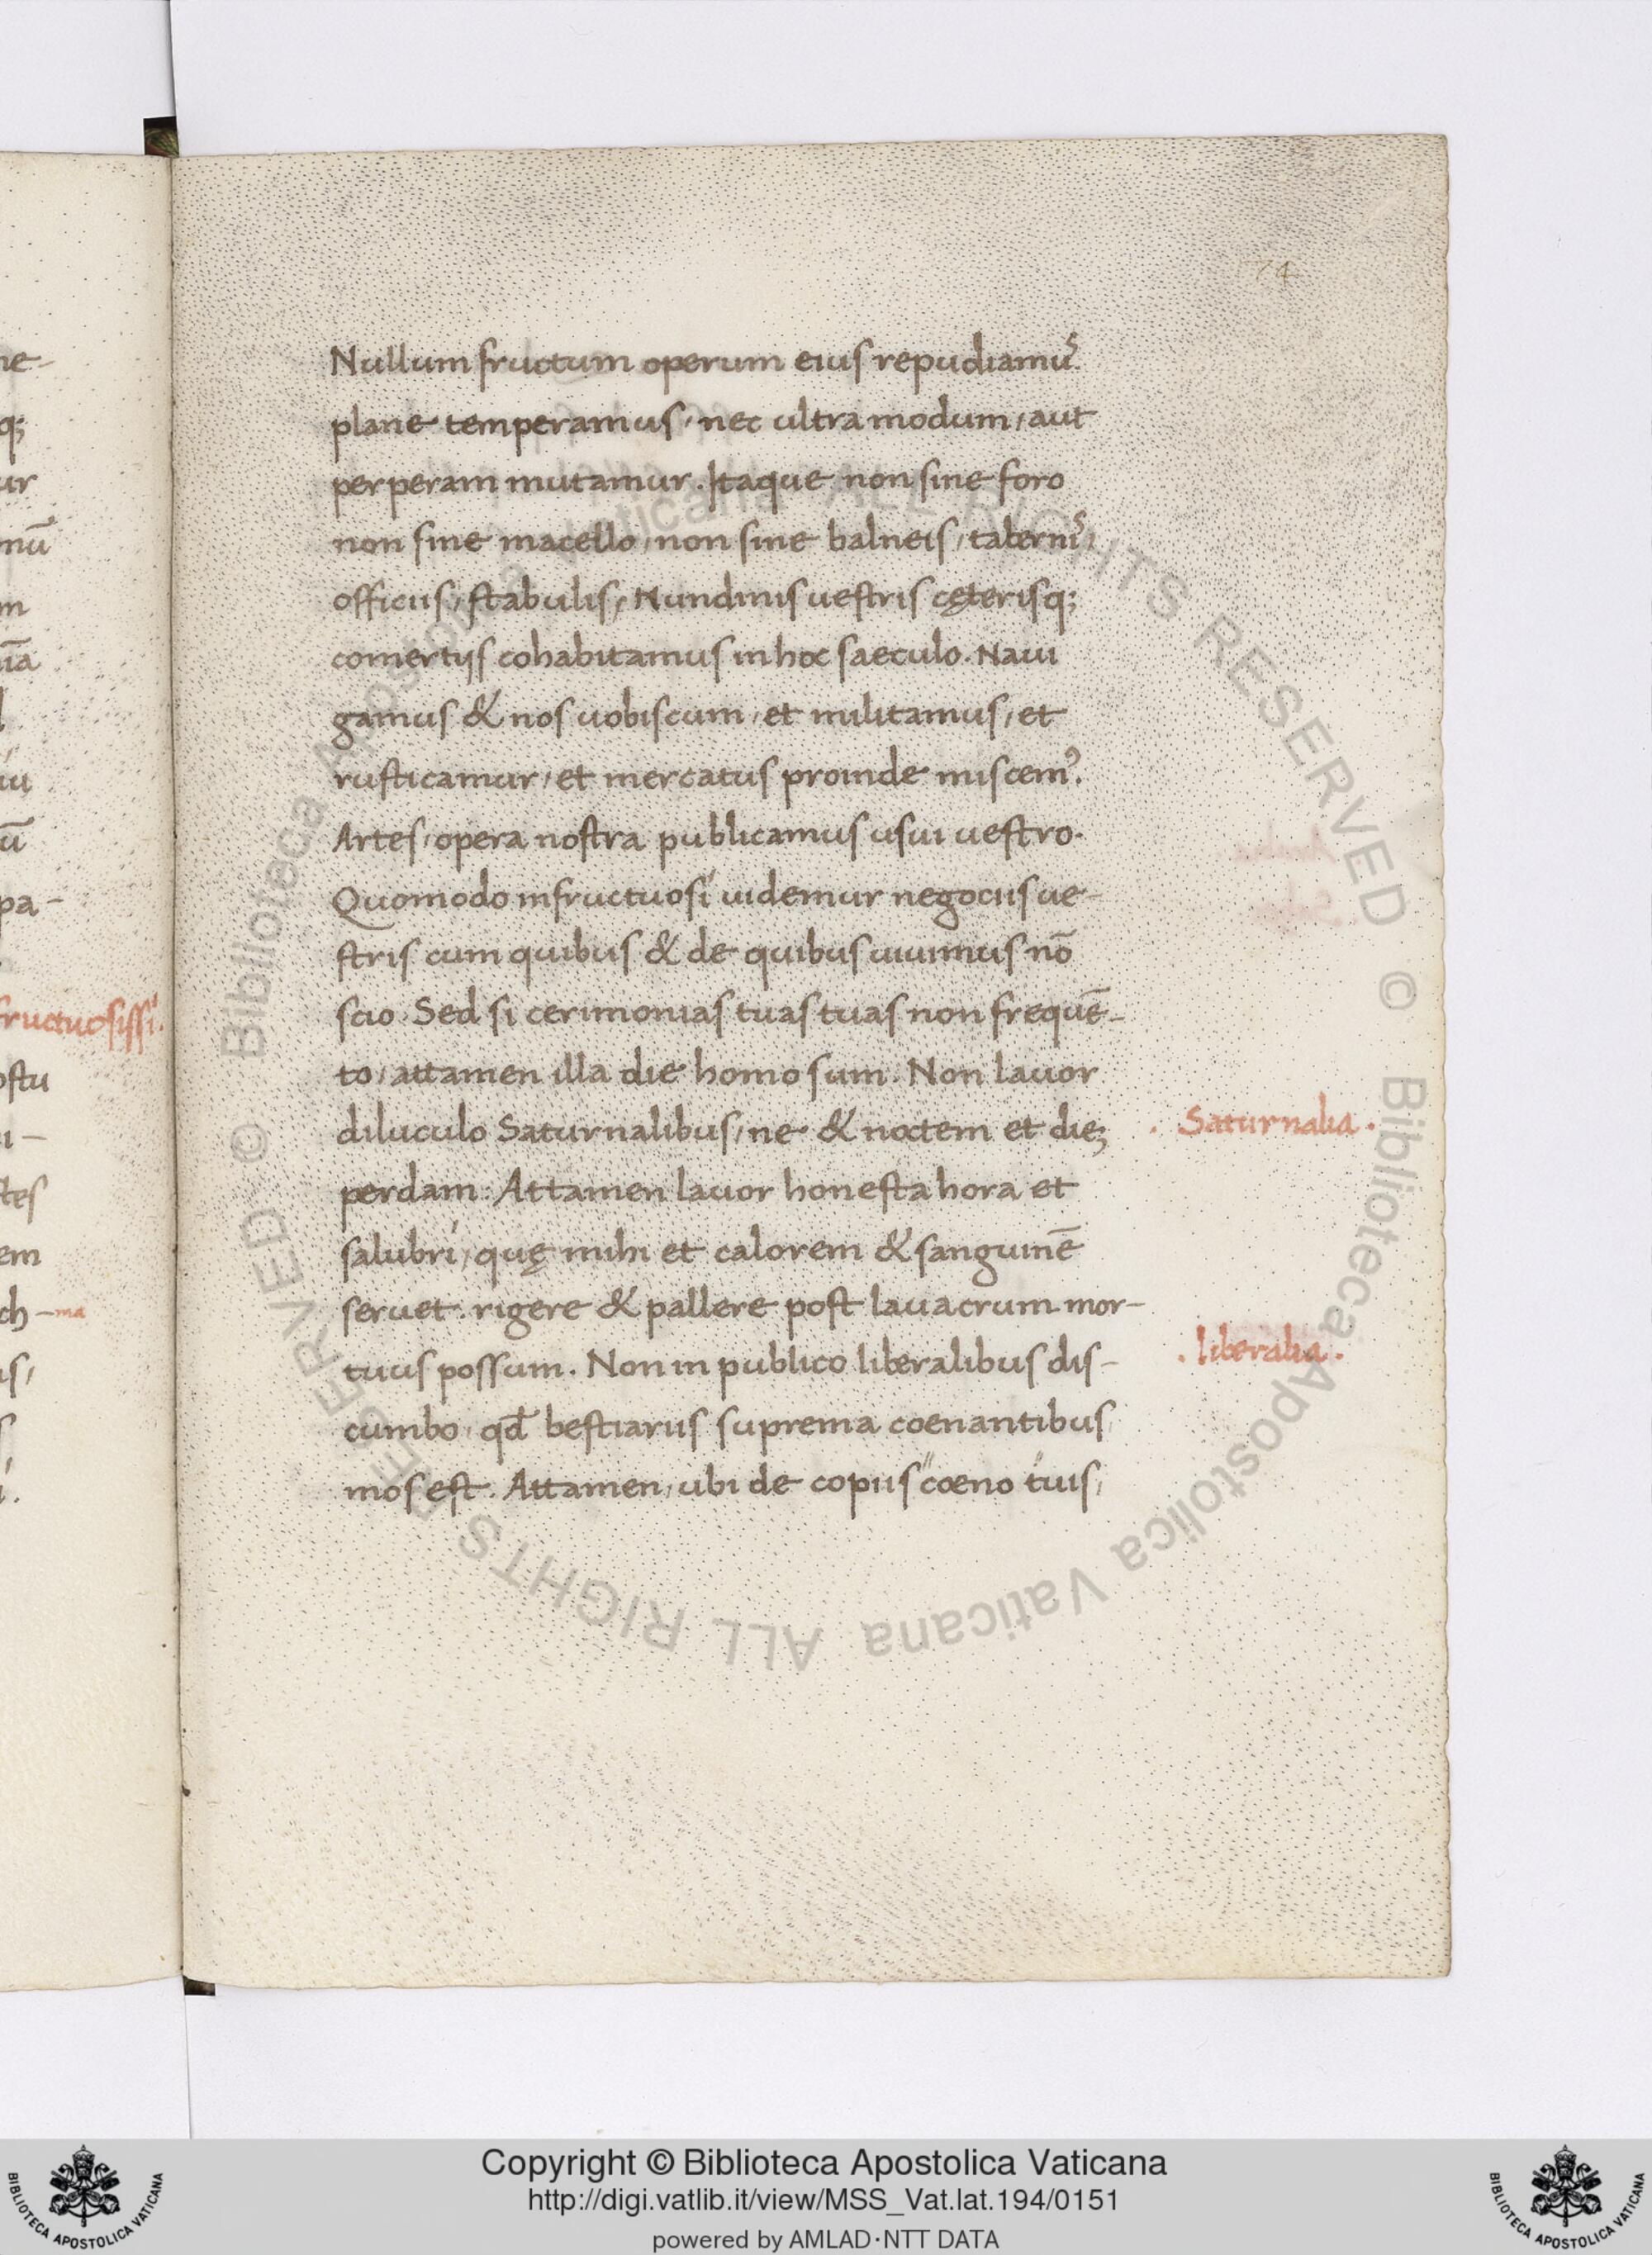 74
Nullum fructum operum eius repudiamuˢ.
plane temperamus, nec ultra modum, aut
perperam mutamur. Itaque non sine foro
non sine macello, non sine balneis, taberniˢ,
officiis, stabulis, Nundinis uestris cęterisq;
comertijs cohabitamus in hoc saeculo. Naui
gamus & nos uobiscum, et militamus, et
rusticamur, et mercatus proinde miscemꝰ.
Artes, opera nostra publicamus usui uestro.
Quomodo infructuosi uidemur negociis ue-
stris cum quibus & de quibus uiuimus nō
scio. Sed si cerimonias tuas tuas non frequē-
to, attamen illa die homo sum. Non lauor
diluculo Saturnalibus, ne & noctem et die;
. Saturnalia .
perdam. Attamen lauor honesta hora et
salubri, quę mihi et calorem & sanguinē
seruet. rigere & pallere post lauacrum mor-
tuus possum. Non in publico liberalibus dis-
. liberalia .
cumbo, qđ bestiariis suprema coenantibus
mos est. Attamen, ubi de copiis" coeno tuis,
ne-
q;
ur
mū
m
ructuosissi.
ostu
tes
em
ch-ma
pa-
Copyright © Biblioteca Apostolica Vaticana
http://digi.vatlib.it/view/MSS_Vat.lat.194/0151
powered by AMLAD·NTT DATA
BIBLIOTECA APOSTOLICA VATICANA
BIBLIOTECA APOSTOLICA VATICANA
© Biblioteca Apostolica Vaticana ALL RIGHTS RESERVED © Biblioteca Apostolica Vaticana ALL RIGHTS RESERVED